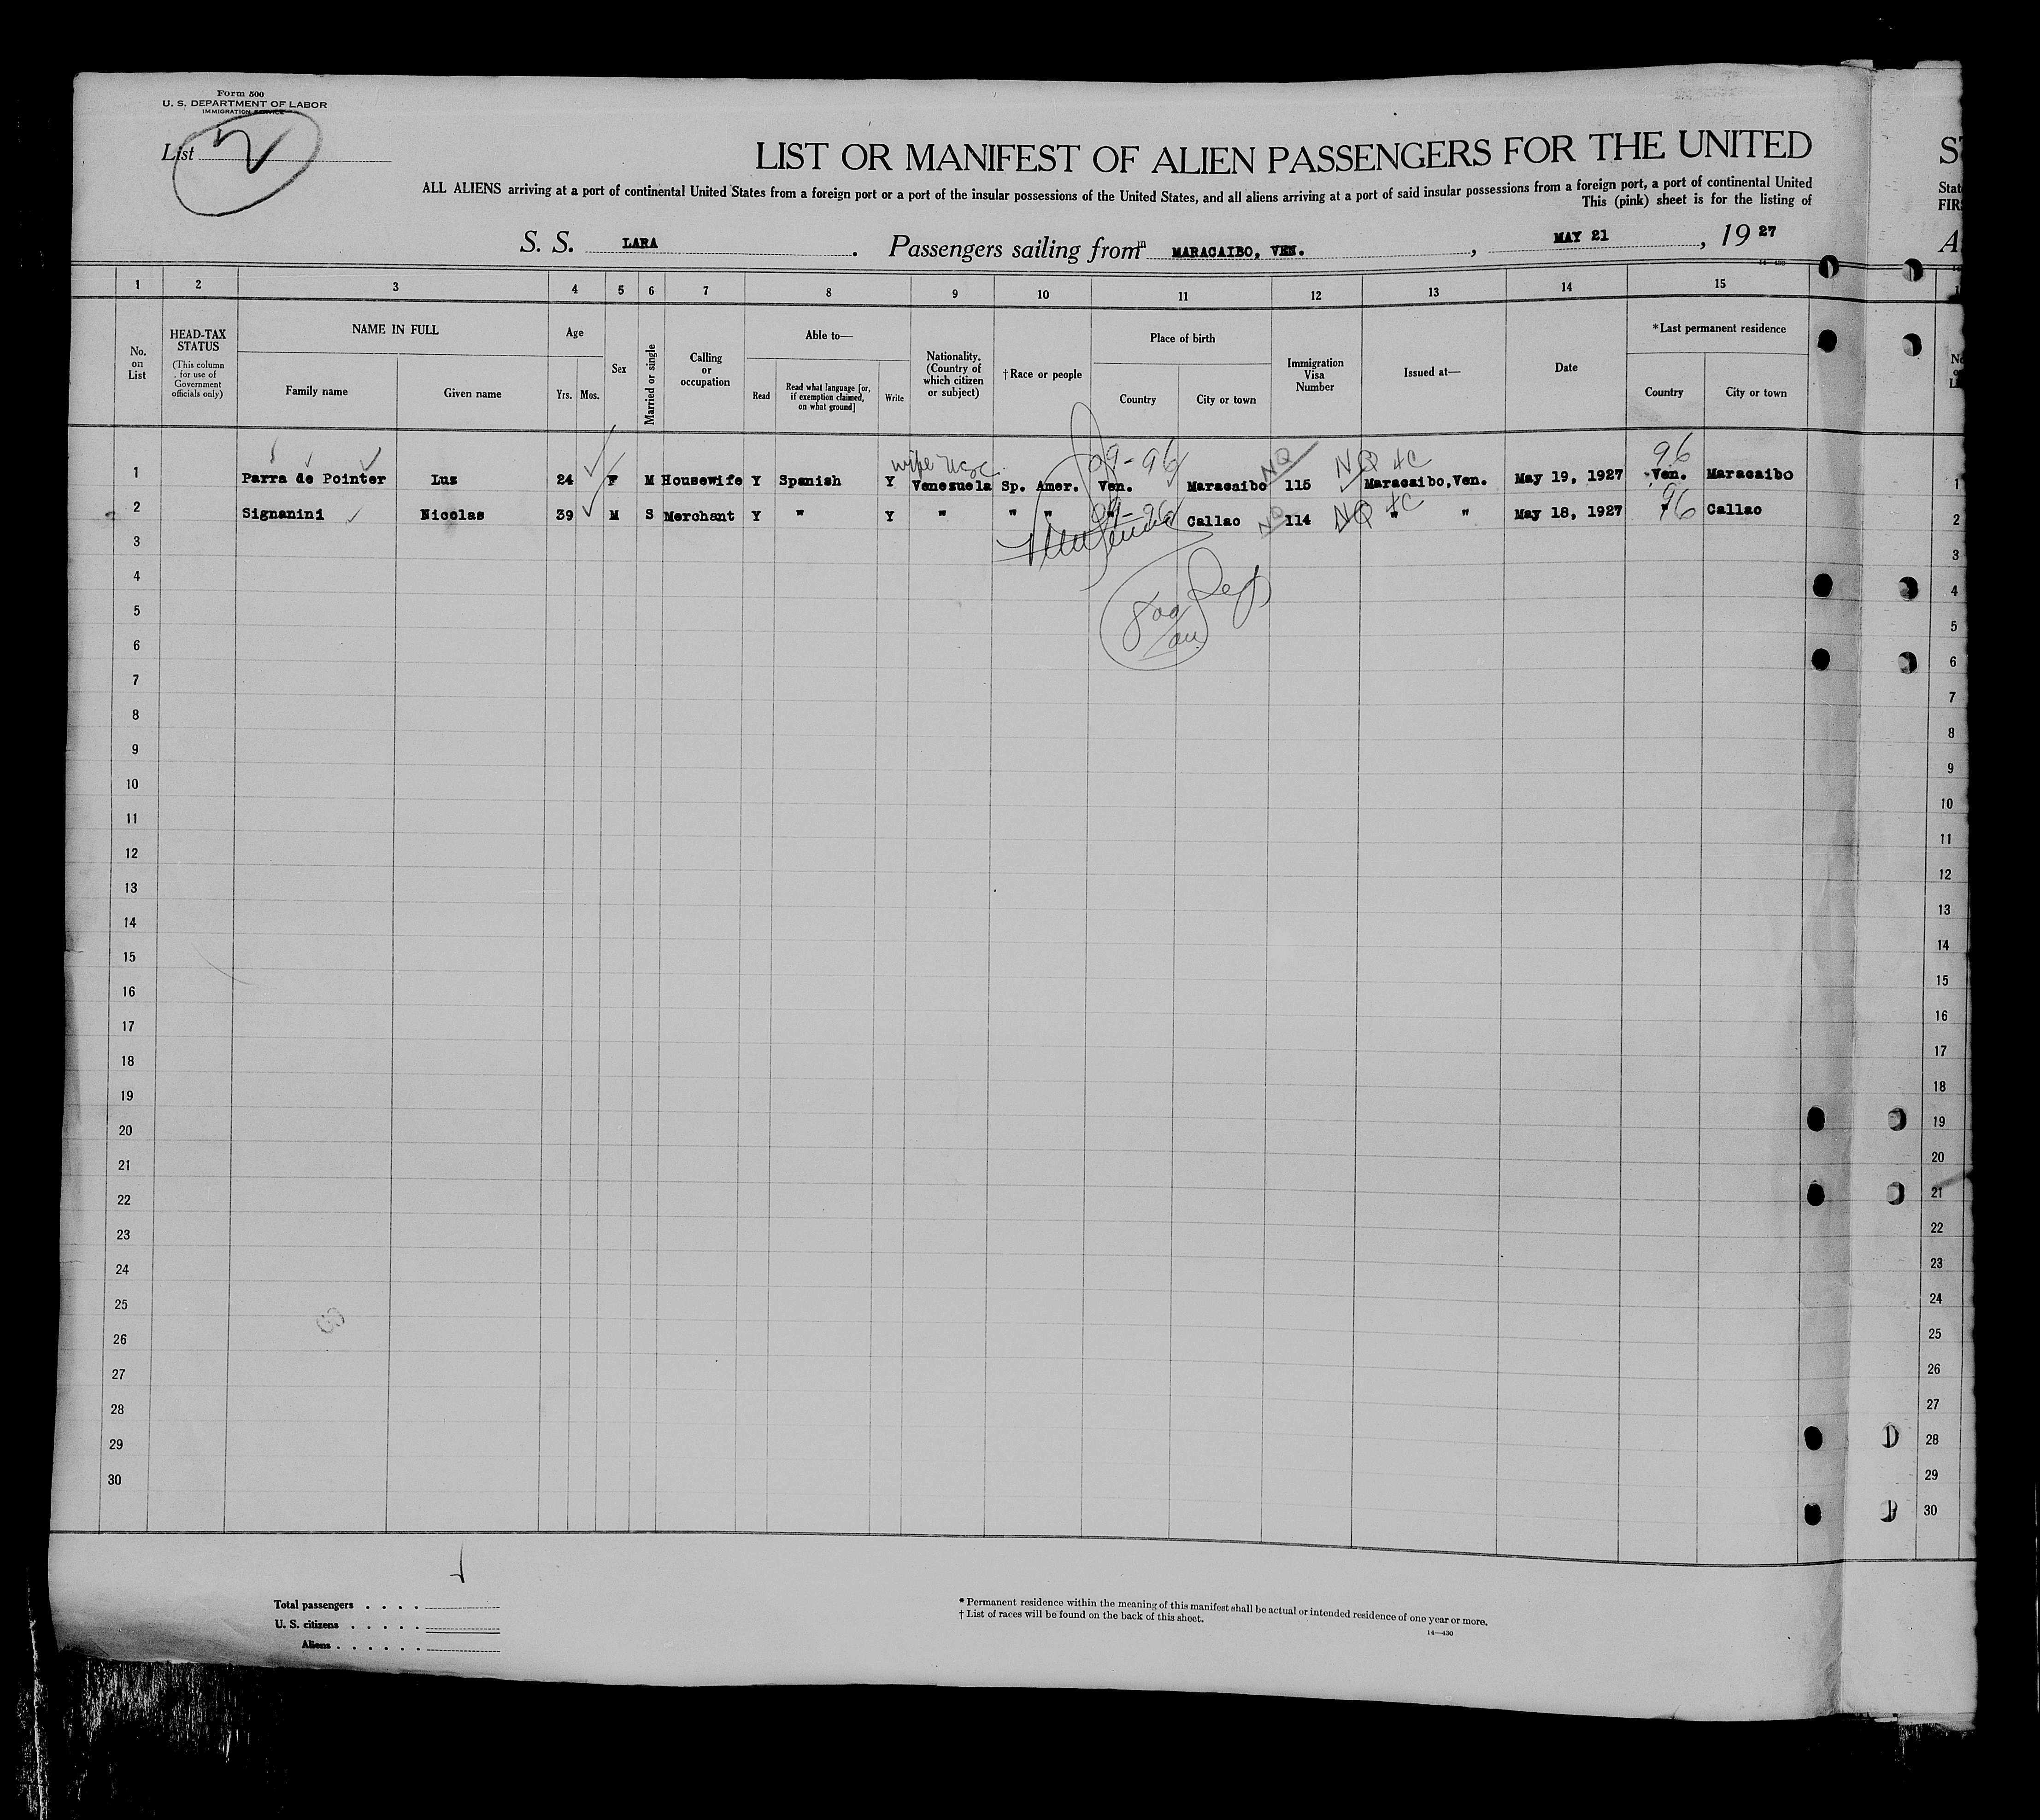 Form 500
U. S. DEPARTMENT OF LABOR
IMMIGRATION SERVICE
List 2
LIST OR MANIFEST OF ALIEN PASSENGERS FOR THE UNITED
ALL ALIENS arriving at a port of continental United States from a foreign port or a port of the insular possessions of the United States, and all aliens arriving at a port of said insular possessions from a foreign port, a port of continental United
This (pink) sheet is for the listing of
Stat
FIR
S. S. LARA. Passengers sailing from MARACAIBO, VEN., MAY 21, 1927
A
1 2 3 4 5 6 7 8 9 10 11 12 13 14 15
No. on List
HEAD-TAX STATUS
(This column for use of Government officials only)
NAME IN FULL
Family name Given name
Age
Yrs. Mos.
Sex
Married or single
Calling or occupation
Able to—
Read
Read what language [or, if exemption claimed, on what ground]
Write
Nationality. (Country of which citizen or subject)
†Race or people
Place of birth
Country City or town
Immigration Visa Number
Issued at—
Date
*Last permanent residence
Country City or town
wife USC 09-96 NQ NQ 4C 96
1 Parra de Pointer Luz 24 F M Housewife Y Spanish Y Venezuela Sp. Amer. Ven. Maracaibo 115 Maracaibo,Ven. May 19, 1927 Ven. Maracaibo 1
09-96 NQ NQ 4C 96
2 Signanini Nicolas 39 M S Merchant Y " Y " " " " Callao 114 " " May 18, 1927 " Callao 2
3 3
4 4
5 5
6 6
7 7
8 8
9 9
10 10
11 11
12 12
13 13
14 14
15 15
16 16
17 17
18 18
19 19
20 20
21 21
22 22
23 23
24 24
25 25
26 26
27 27
28 28
29 29
30 30
Total passengers . . . .
U. S. citizens . . . . .
Aliens . . . . . .
* Permanent residence within the meaning of this manifest shall be actual or intended residence of one year or more.
† List of races will be found on the back of this sheet.
14—430